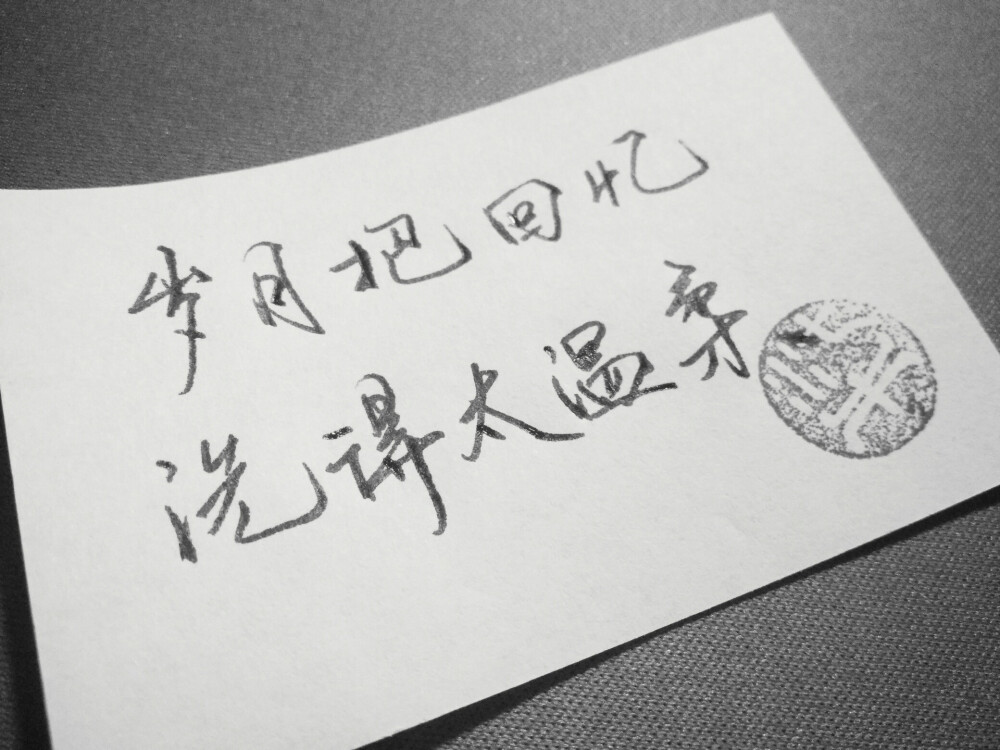 岁月把回忆
洗得太温柔